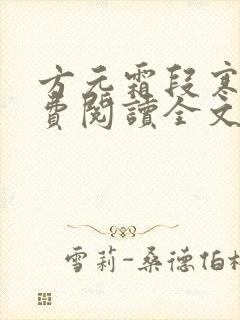 方元霜段寒
費閱讀全文
雪莉-桑德伯格